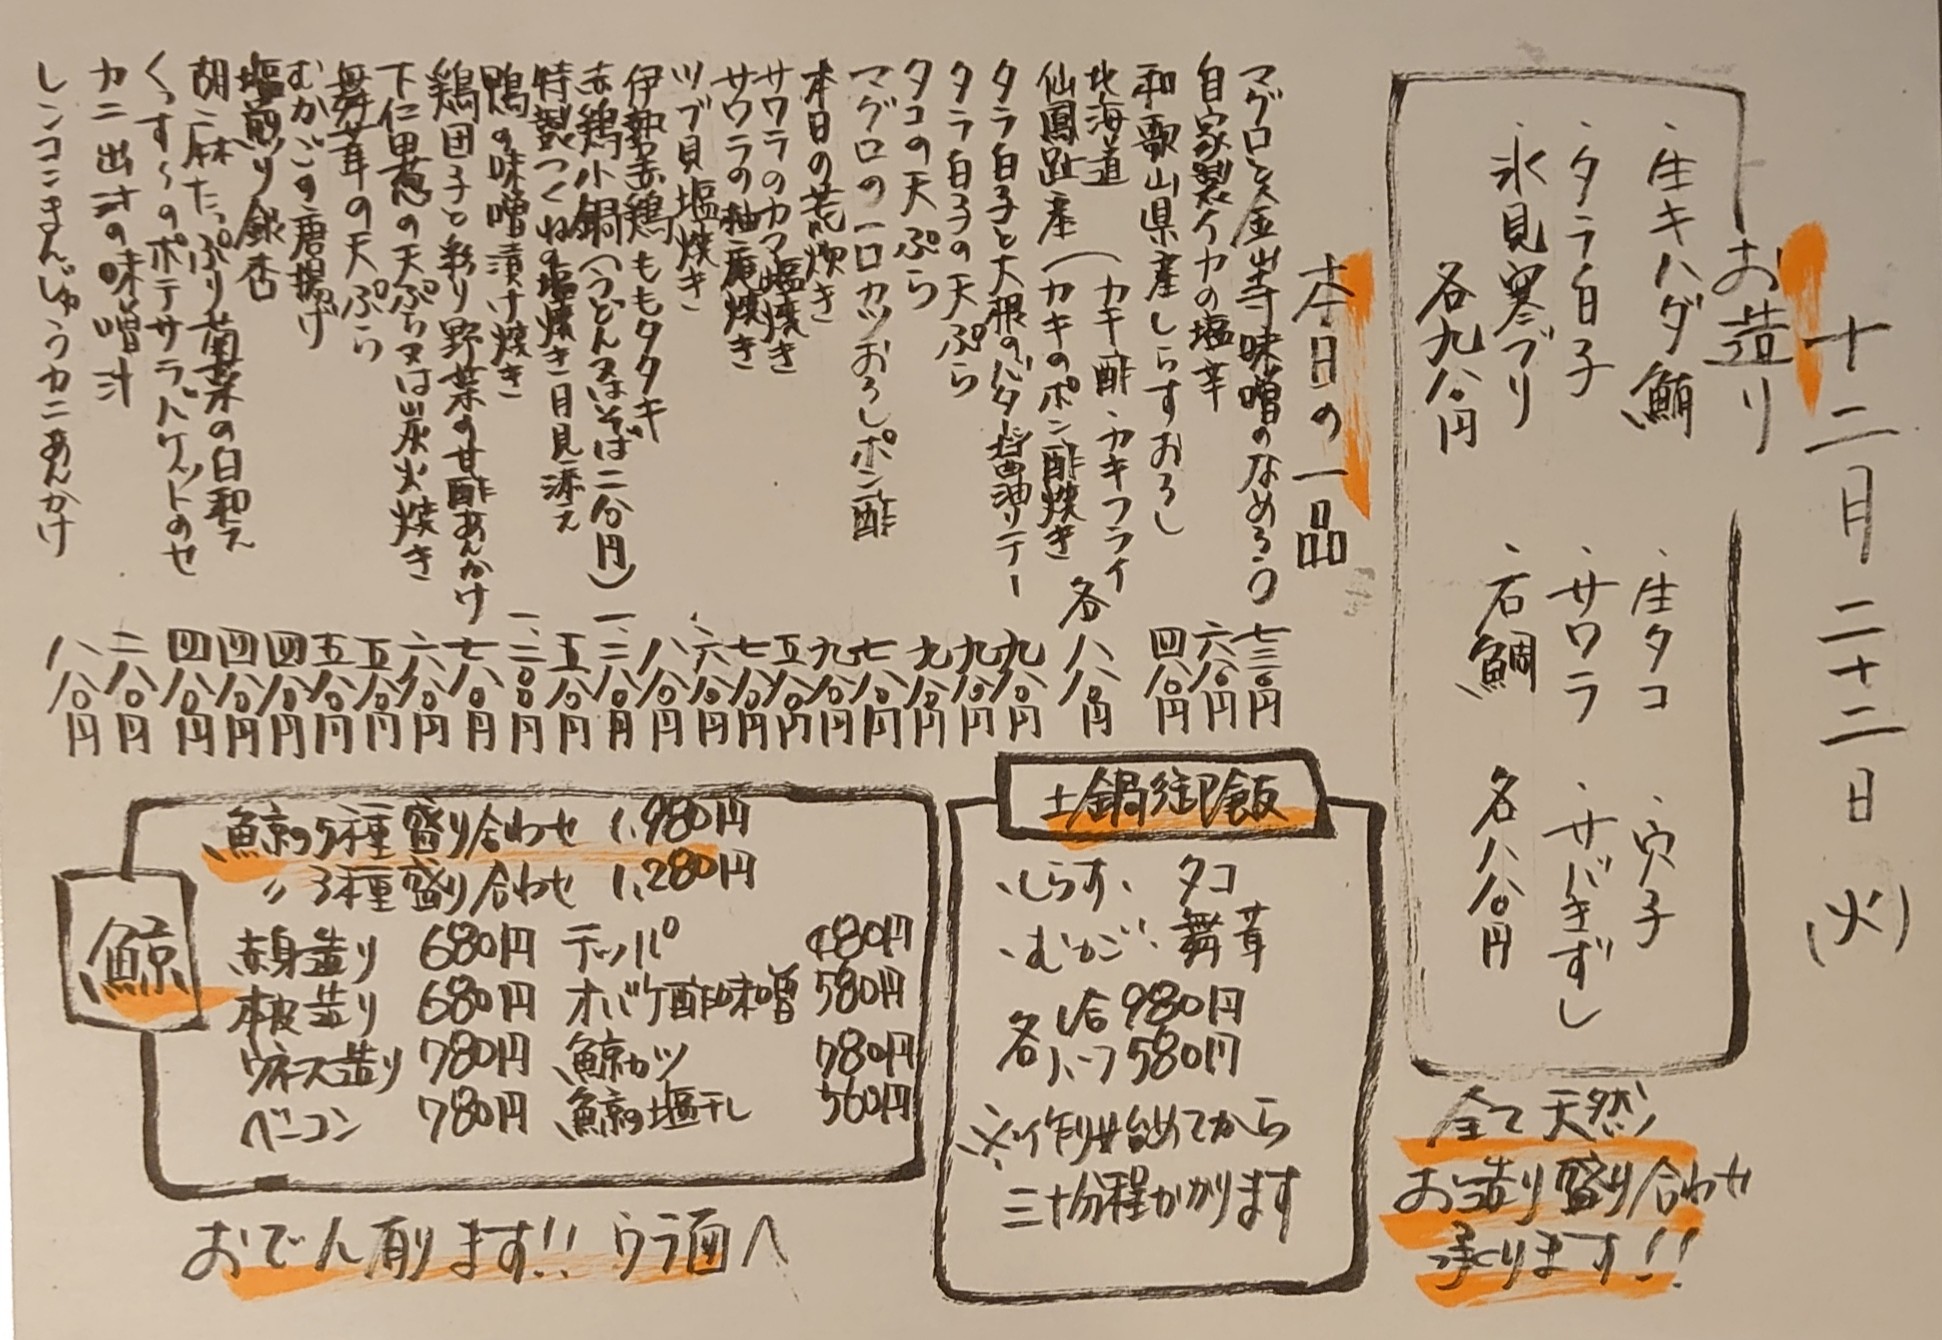 十二月二十二日(火)
お造り
・生キハダ鮪
・生タコ
・穴子
・タラ白子
・サワラ
・サバきずし
・氷見寒ブリ
・石鯛
各九八〇円
各八八〇円
全て天然
お造り盛り合わせ
承ります!!
本日の一品
マグロと金山寺味噌のなめろう 七三〇円
自家製イカの塩辛 六八〇円
和歌山県産しらすおろし 四八〇円
北海道
仙鳳趾産
(カキ酢・カキフライ
(カキのポン酢焼き
各八八〇円
タラ白子と大根のバター醤油ソテー 九八〇円
タラ白子の天ぷら 九八〇円
タコの天ぷら 九八〇円
マグロの一口カツおろしポン酢 七八〇円
本日の荒炊き 九八〇円
サワラのカマ塩焼き 五八〇円
サワラの柚庵焼き 七八〇円
ツブ貝塩焼き 六八〇円
伊勢赤鶏ももタタキ 八八〇円
赤鶏小鍋(うどん又はそば二八〇円) 一、二八〇円
特製つくねの塩焼き月見添え 五八〇円
鴨の味噌漬け焼き 一、二〇〇円
鶏団子と彩り野菜の甘酢あんかけ 七八〇円
下仁田葱の天ぷら又は炭火焼き 六八〇円
舞茸の天ぷら 五八〇円
むかごの唐揚げ 五八〇円
塩煎り銀杏 四八〇円
胡麻たっぷり菊菜の白和え 四八〇円
くっすぅのポテサラバケットのせ 四八〇円
カニ出汁の味噌汁 二八〇円
レンコンまんじゅうカニあんかけ 八八〇円
土鍋御飯
・しらす・タコ
・むかご・舞茸
各1合980円
各ハーフ580円
※作り始めてから
三十分程かかります
鯨
鯨の5種盛り合わせ 1,980円
〃3種盛り合わせ 1,280円
赤身造り 680円 テッパ 480円
本皮造り 680円 オバケ酢味噌 580円
ウネス造り 780円 鯨カツ 780円
ベーコン 780円 鯨の塩干し 560円
おでん有ります!! ウラ面へ